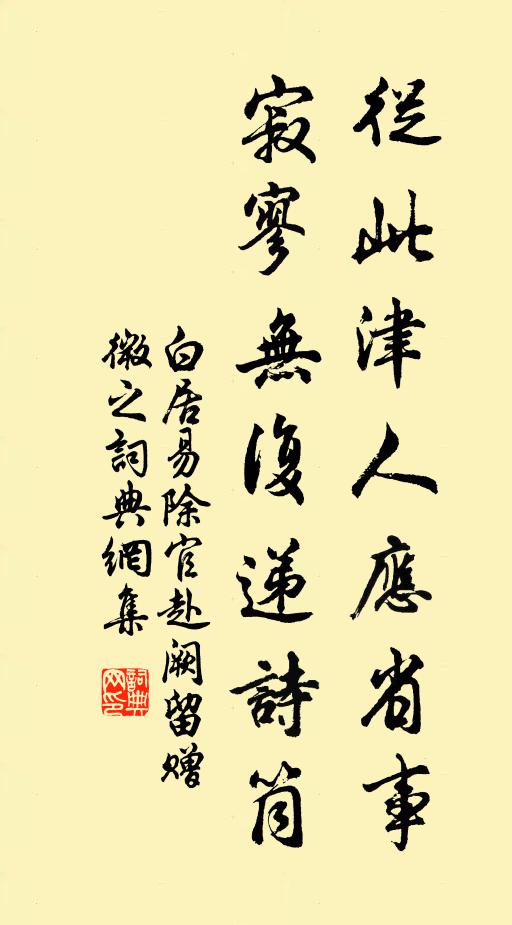 從此津人應省事
寂寥無復遞詩筒
白居易除官赴阙留贈
微之詞典網集
詞典
网印